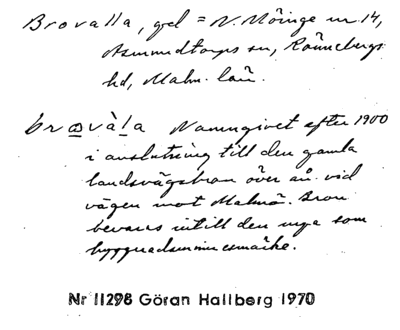 Brovalla, gd = N. Möinge nr 14,
Asmundtorps sn, Rönnebergs
hd, Malm. län.
bro̲vàl̲a Namngivet efter 1900
i anslutning till den gamla
landsvägsbron över ån vid
vägen mot Malmö. Bron
bevaras intill den nya som
byggnadsminnesmärke.
Nr 11298 Göran Hallberg 1970